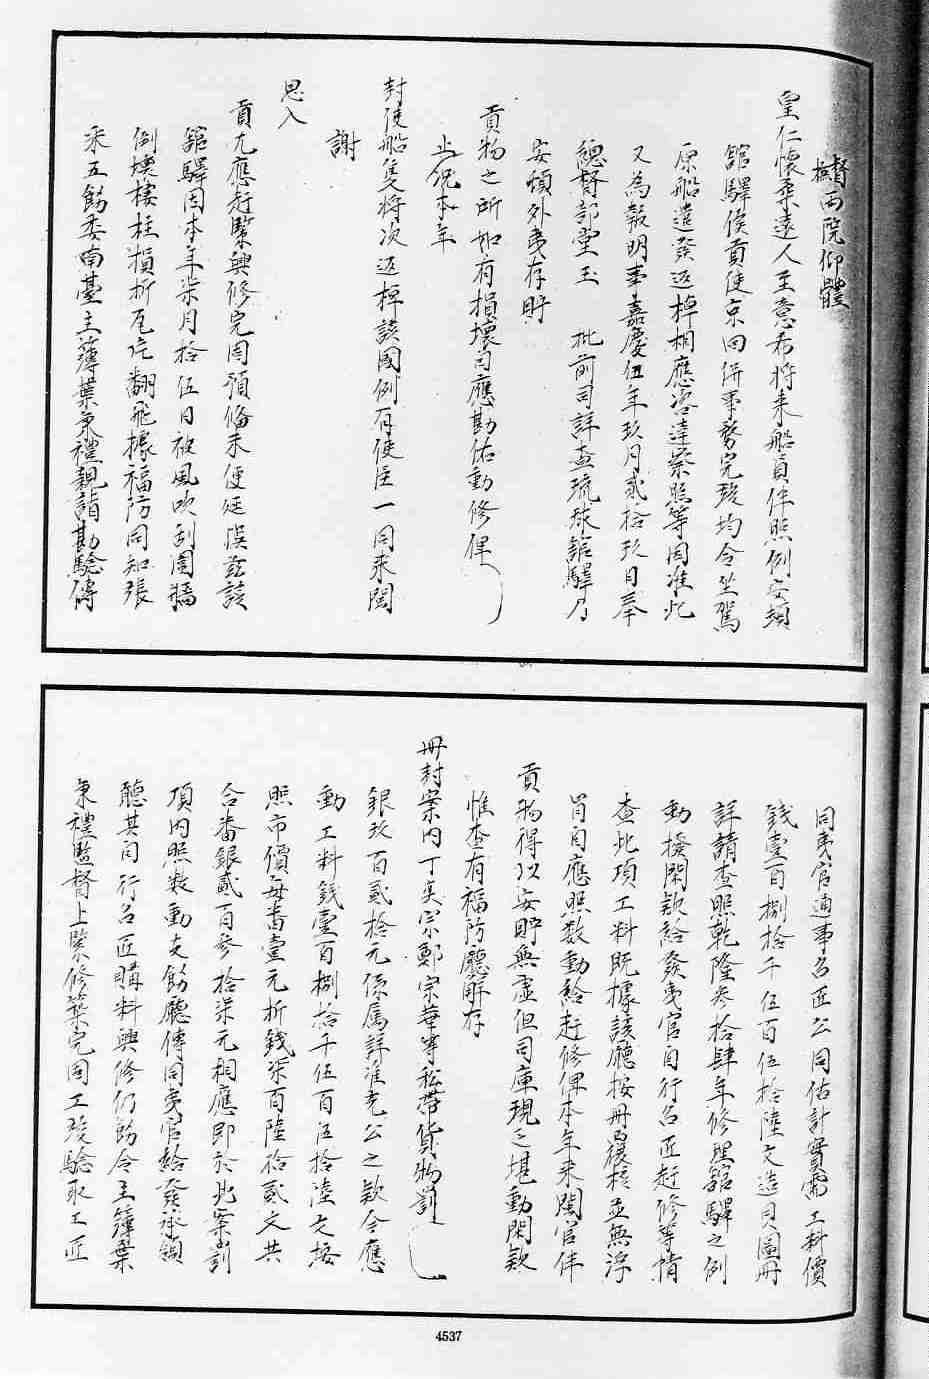 督兩院仰體
皇仁懷柔遠人至意希將來船員伴照例安頓
舘驛俟貢使京回併事務完竣均令坐駕
原船遣發返棹相應咨達察照等因准此
又為報明事嘉慶伍年玖月貳拾玖日奉
總督部堂玉 批前司詳查琉球舘驛乃
安頓外夷存貯
貢物之所如有損壞自應勘估動修俾
止況本年
封使船隻將次返棹該國例有使臣一同來閩
謝
恩入
貢尤應赶緊興修完固預俻未便延悞玆該
舘驛因本年柒月拾伍日被風吹刮圍墻
倒壞樓柱損折瓦片翻飛據福防同知張
采五飭委南臺主簿葉秉禮親詣勘驗傳
同夷官通事各匠公同估計實需工料價
錢壹百捌拾千伍百伍拾陸文造具圖冊
詳請查照乾隆叁拾肆年修理舘驛之例
動撥閑欵給發夷官自行召匠赶修等情
查此項工料既據該廳按冊覆核並無浮
冐自應照数動給赶修俾本年來閩官伴
貢物得以安貯無虛但司庫現乏堪動閑款
惟查有福防廳解存
冊封案内丁奕宗鄭宗華等私帶貨物罰
銀玖百貳拾元係屬詳准充公之款今應
動工料錢壹百捌拾千伍百伍拾陸文按
照市價每番壹元折錢柒百陸拾貳文共
合番銀貳百叁拾柒元相應即於此案罰
項内照数動支飭廳傳同夷官給發承領
聽其自行召匠購料興修仍飭令主簿葉
秉禮監督上緊修築完固工竣驗取工匠
4537